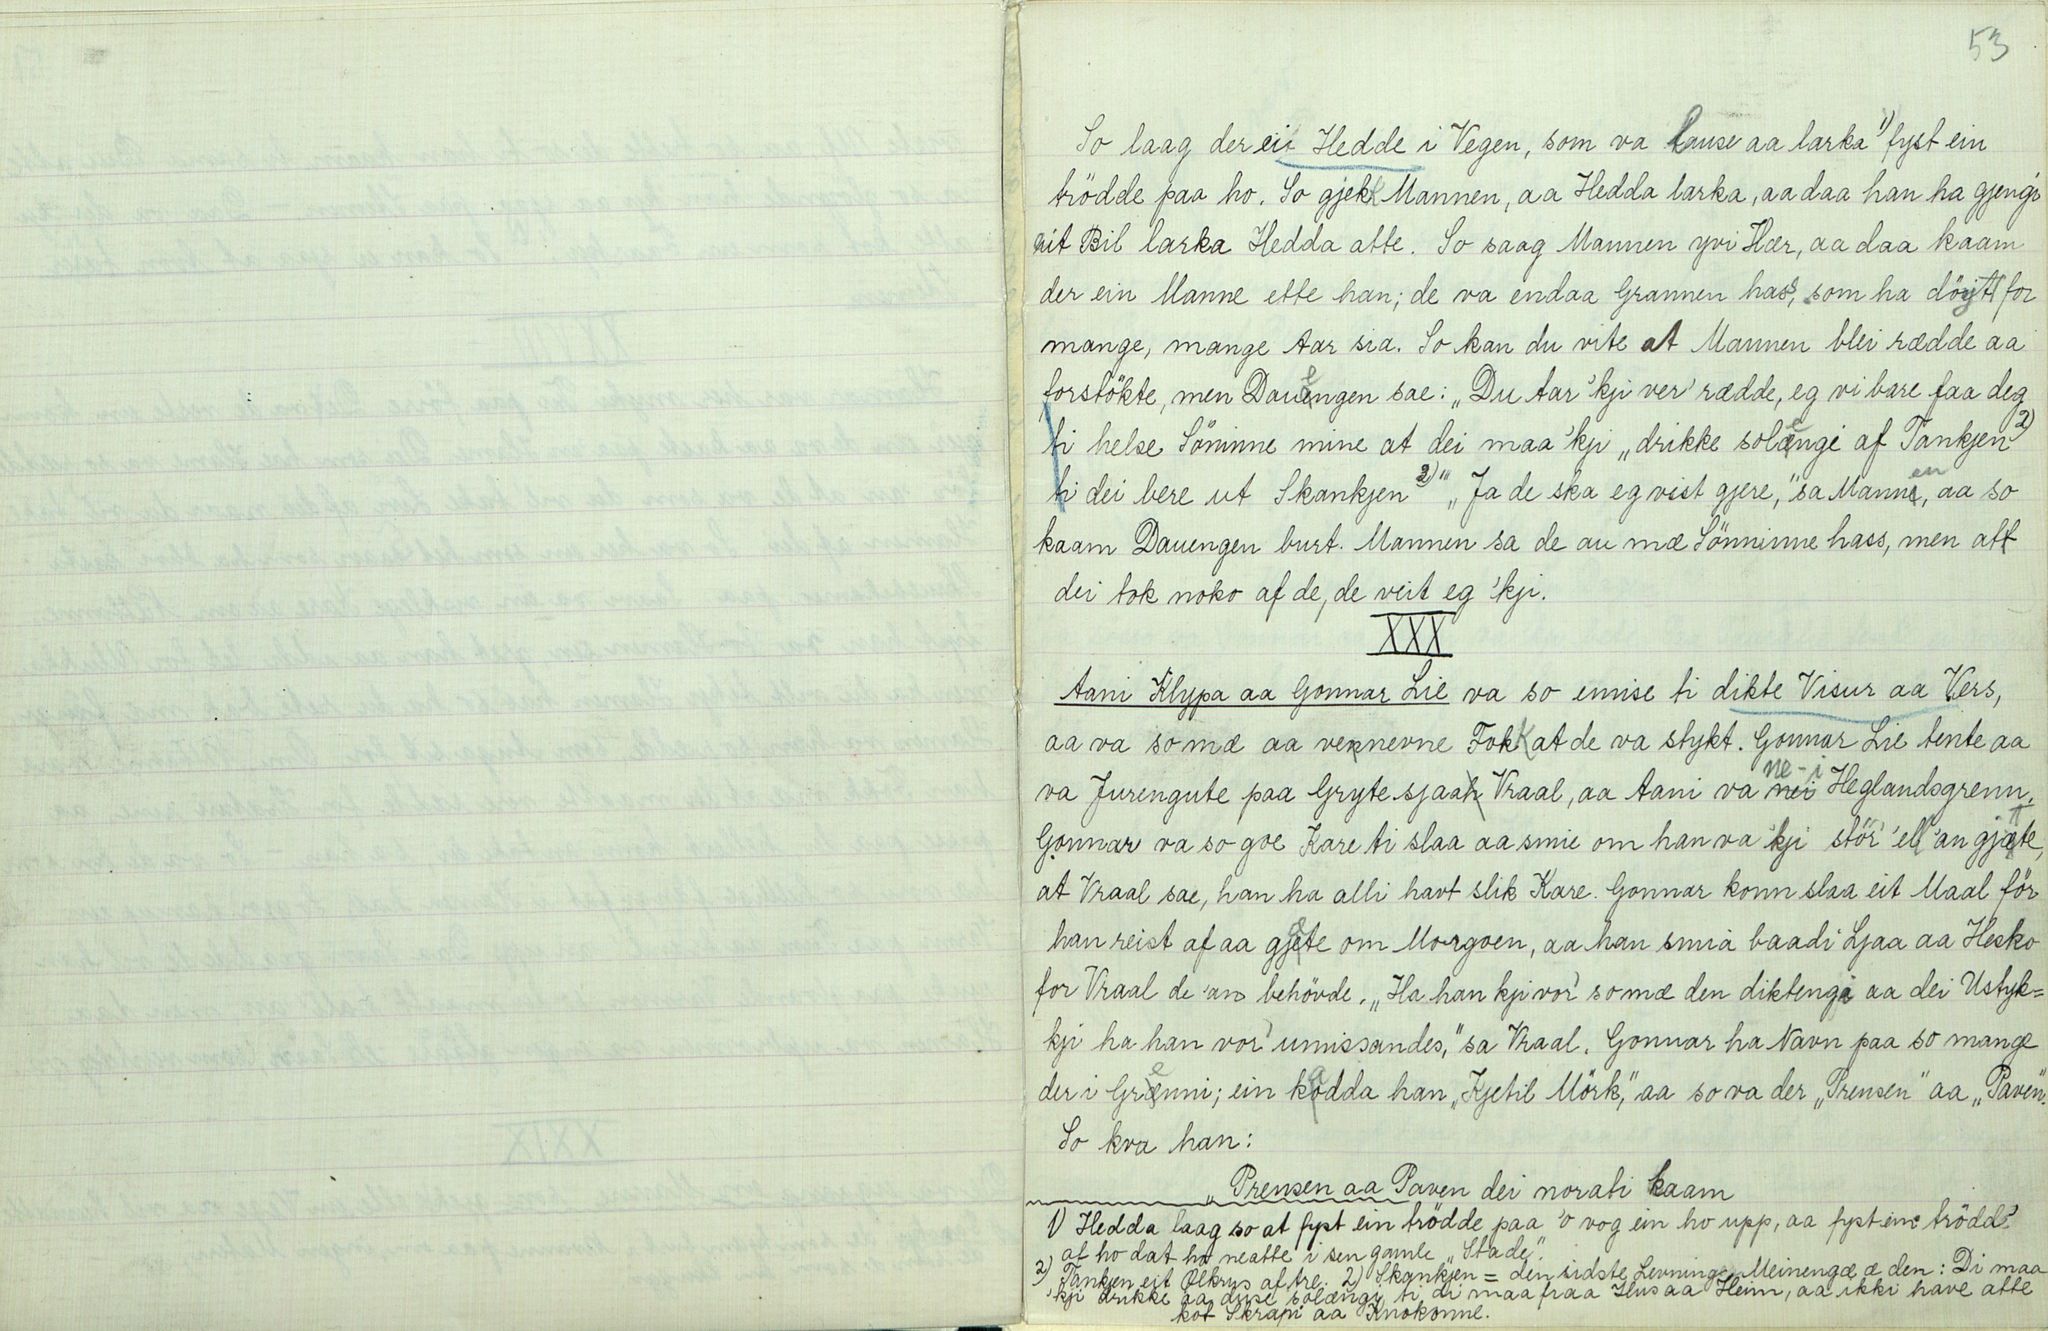 53
So laag der ei Hedde i Vegen, som va lause aa larka 1) fyst ein
trödde paa ho. So gjekk Mannen, aa Hedda larka, aa daa han ha gjengi
eit Bil larka Hedda atte. So saag Mannen yvi Hær, aa daa kaam
der ein Manne ette han; de va endaa Grannen hass, som ha döytt for
mange, mange Aar sia. So kan du vite at Mannen blei rædde aa
forstökte, men Dauengen sae: „Du tar 'kji ver' rædde, eg vi bare faa deg
ti helse Söninne mine at dei maa 'kji „drikke solengi af Tankjen 2)
ti dei bere ut Skankjen 2)" „Ja de ska eg vist gjere," sa Mannen, aa so
kaam Dauengen burt. Mannen sa de au mæ Sönninne hass, men att
dei tok noko af de, de veit eg 'kji.
XXX
Aani Klypa aa Gonnar Lie va so emise ti dikte Visur aa Vers,
aa va so mæ aa vernevne Fokk at de va stykt. Gonnar Lie tente aa
va Jurengute paa Grytesjaa Vraal, aa Aani va ne-i Heglandsgrenn.
Gonnar va so goe Kare ti slaa aa smie om han va 'kji stör' 'ell 'an gjætte,
at Vraal sae, han ha alli havt slik Kare. Gonnar konn slaa eit Maal för
han reist af aa gjæte om Morgoen, aa han smia baadi Ljaa aa Hesko
for Vraal de 'an behövde. „Ha han kji vor' so mæ den diktengi aa dei Ustyk=
kji ha han vor' umissandes," sa Vraal. Gonnar ha Navn paa so mange
der i Grenni; ein kadda han „Kjetil Mörk," aa so va der „Prensen" aa „Paven".
So kva han:
„Prensen aa Paven dei norati kaam
1) Hedda laag so at fyst ein trödde paa 'o vog ein ho upp, aa fyst ein trödde
af ho dat ho neatte i sen gamle „Stade".
2) Tankjen eit Ölkrus af tre. 2) Skankjen = den sidste Levning. Meinengæ æ den: Di maa
'kji drikke aa duse solængi ti di maa fraa Hus aa Heim, aa ikki have atte
kot Skrapi aa Knokonne.